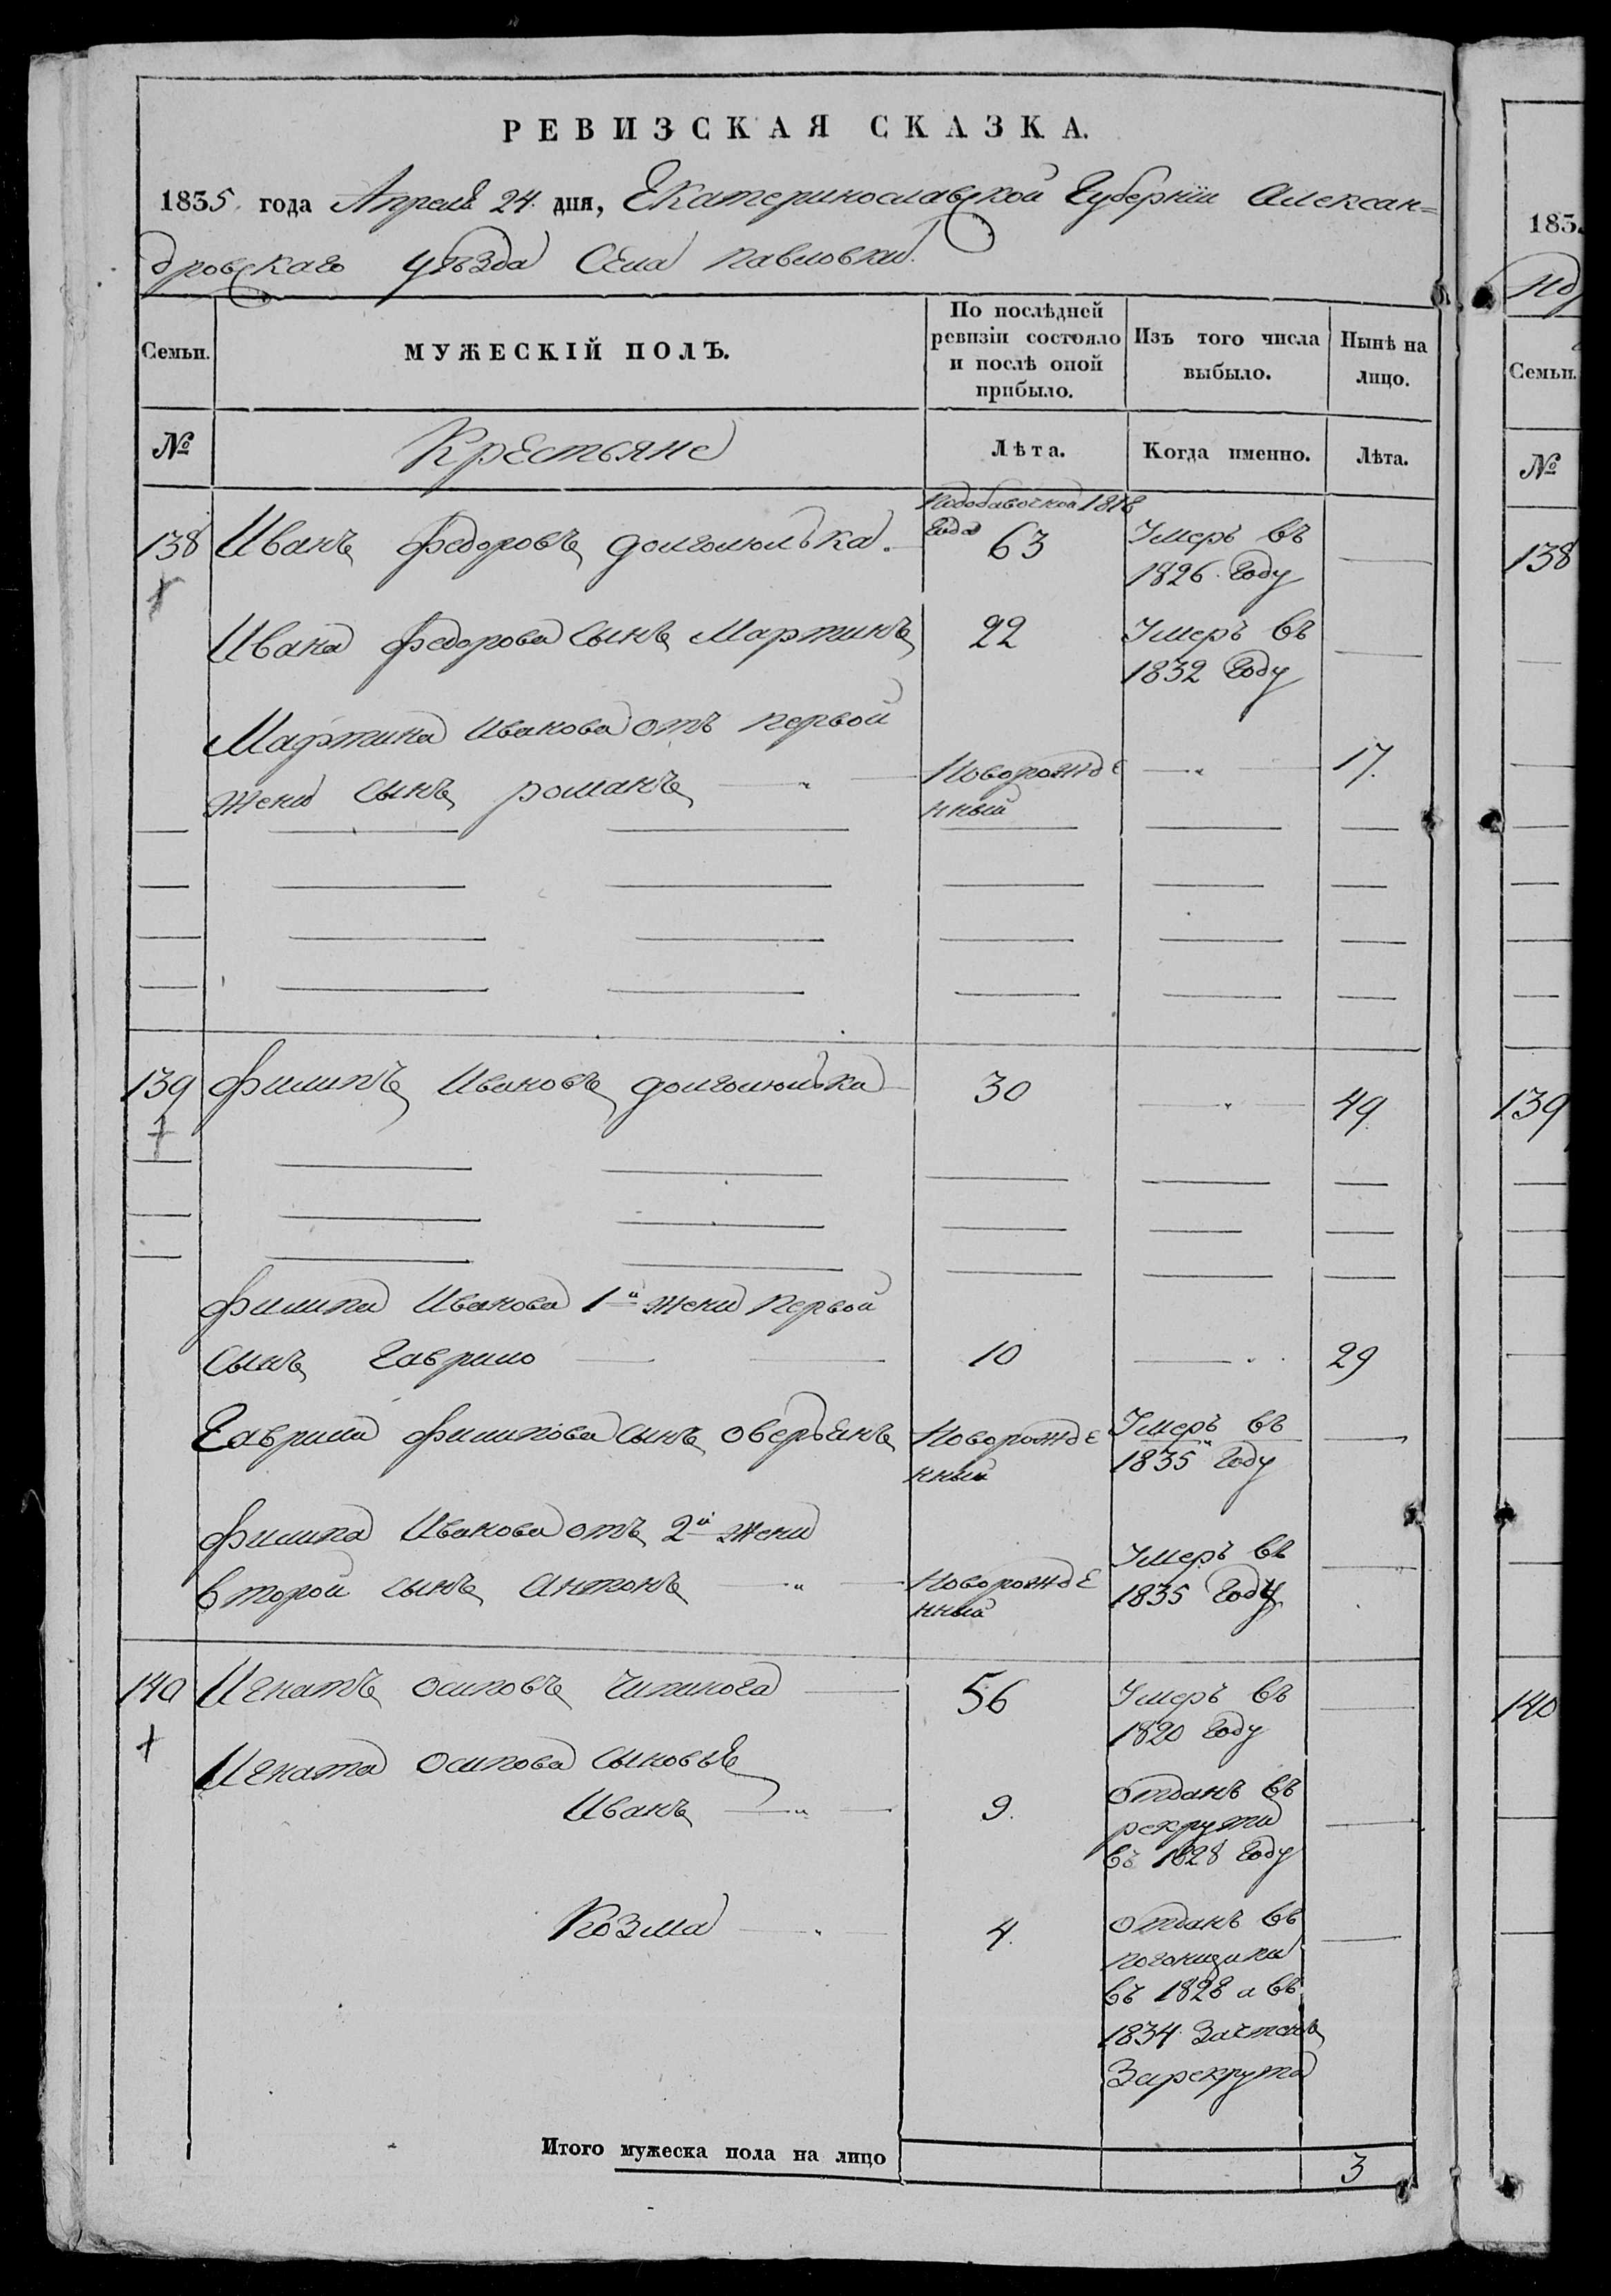 РЕВИЗСКАЯ СКАЗКА.
1835 года Апреля 24 дня, Екатеринославской Губернiи Алексан=
дровскаго уѣзда Села Павловки.
Семьи.
МУЖЕСКІЙ ПОЛЪ.
По послѣдней ревизіи состояло и послѣ оной прибыло.
Изъ того числа выбыло.
Нынѣ на лицо.
№ Крестьяне Лѣта. Когда именно. Лѣта.
Подобавочной 1816 года
138 Иванъ Федоровъ долгополька. 63 Умеръ въ 1826 году —
Ивана Федорова сынъ Мартинъ 22 Умеръ въ 1832 году —
Мартина Иванова отъ первой
жены сынъ романъ Новорожде нный 17.
139 Филипъ Ивановъ 30 49
Филипа Иванова 1й жены первой
сынъ Гаврило 10 29
Гаврила Филипова сынъ оверьянъ Новорожде нный Умеръ въ 1835 году —
Филипа Иванова отъ 2й жены
второй сынъ Антонъ Новорожде нный Умеръ въ 1835 году —
140 Игнатъ Осиповъ 56 Умеръ въ 1820 году —
Игната Осипова сыновья
Иванъ 9. отданъ въ рекруты въ 1828 году —
Козма 4. отданъ въ погонщики въ 1828 а въ 1834 зачтенъ Зарекрута —
Итого мужеска пола на лицо 3
183
Семьи.
№
138
139
140